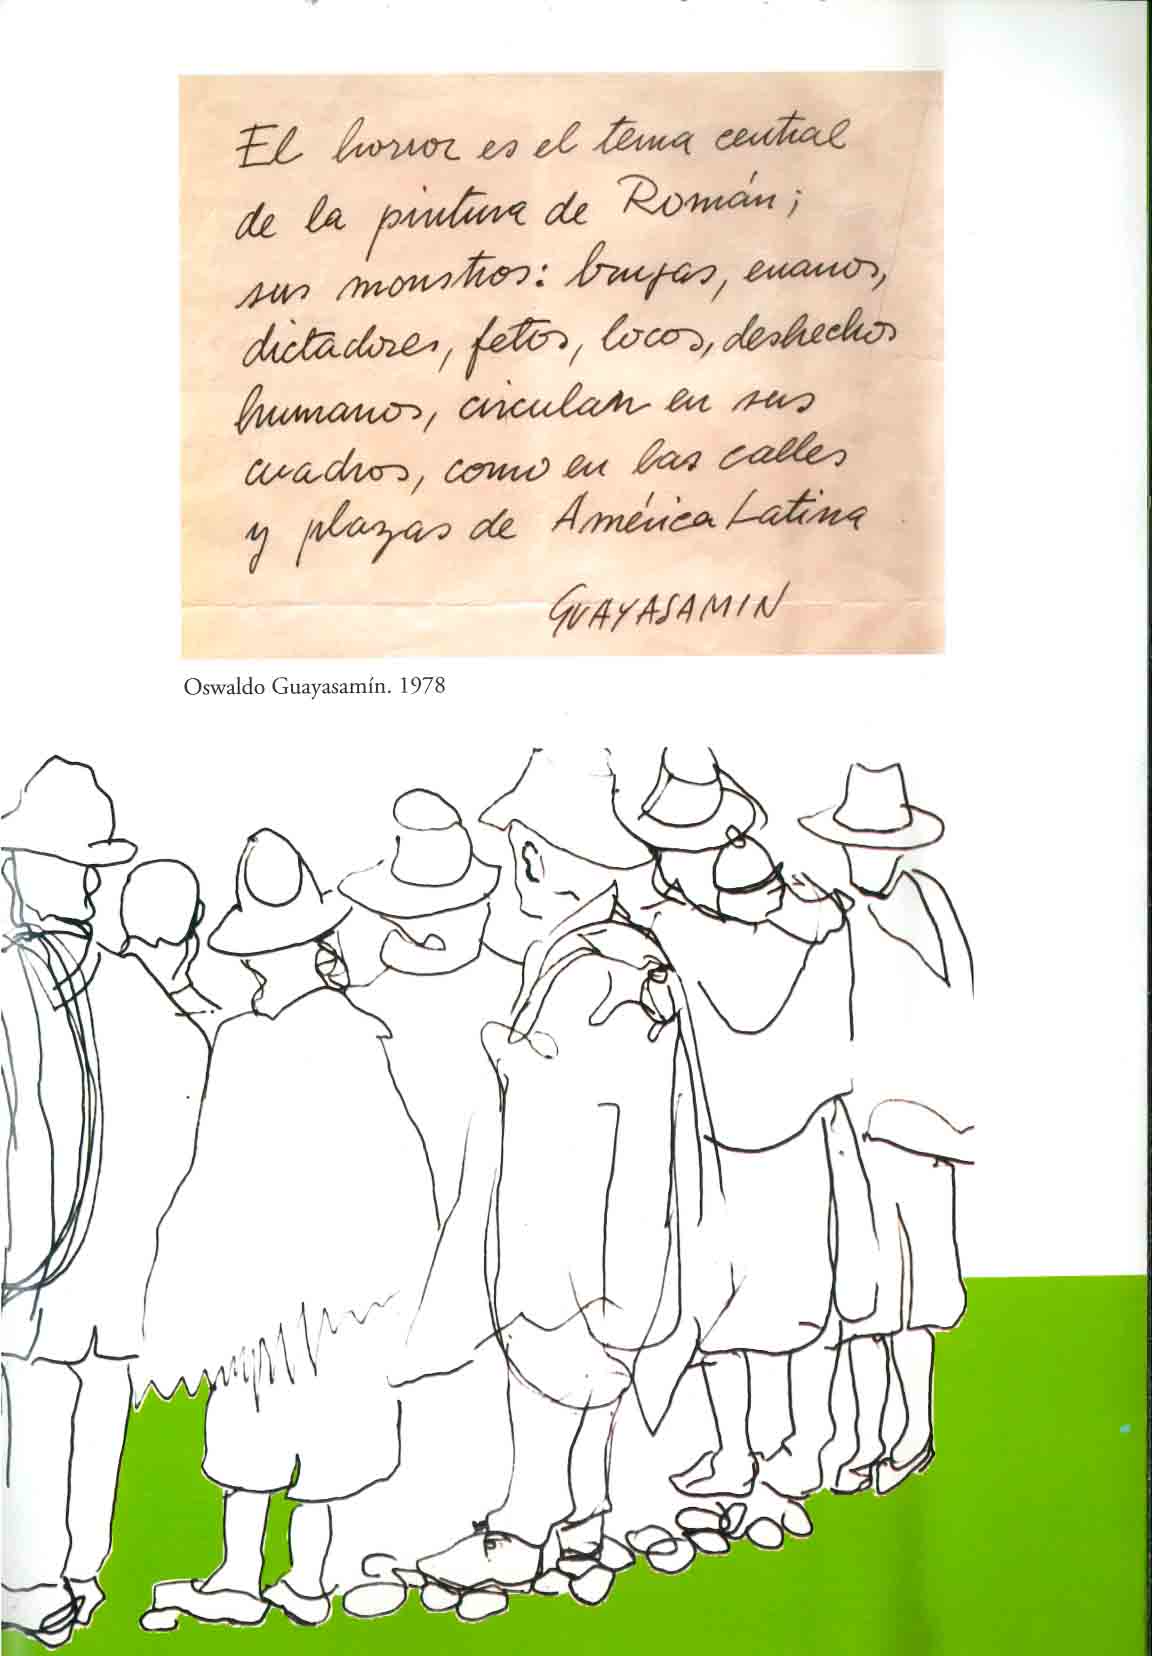 El horror es el tema central
de la pintura de Román;
sus monstros: brujas, enanos,
dictadores, fetos, locos, deshechos
humanos, circulan en sus
cuadros, como en las calles
y plazas de América Latina
GUAYASAMIN
Oswaldo Guayasamín. 1978